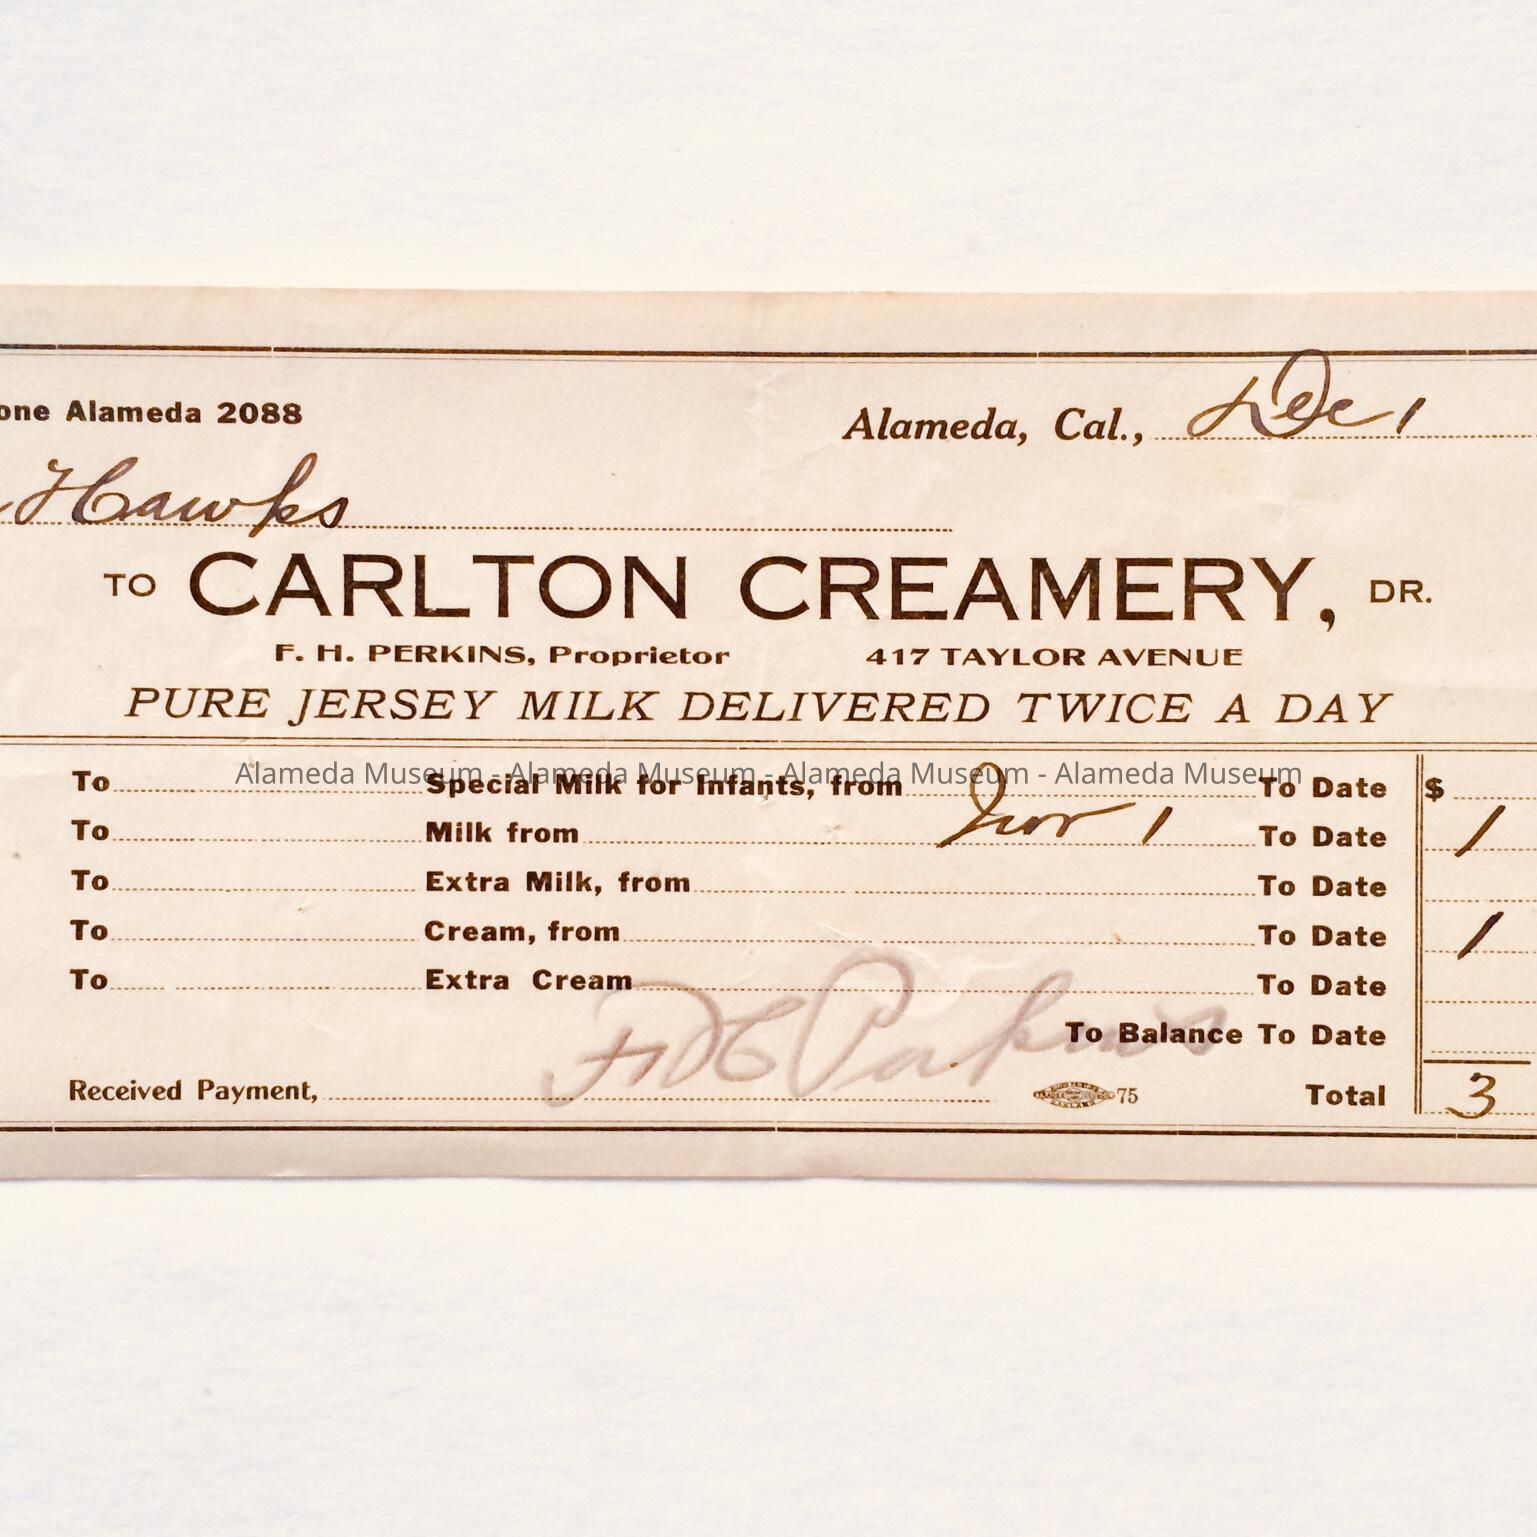 one Alameda 2088
Alameda, Cal., Dec 1
Hawks
TO CARLTON CREAMERY, DR.
F. H. PERKINS, Proprietor 417 TAYLOR AVENUE
PURE JERSEY MILK DELIVERED TWICE A DAY
Alameda Museum - Alameda Museum - Alameda Museum - Alameda Museum
To Special Milk for Infants, from To Date $
To Milk from Nov 1 To Date 1
To Extra Milk, from To Date
To Cream, from To Date 1
To Extra Cream To Date
To Balance To Date
F H Perkins
Received Payment, 75 Total 3